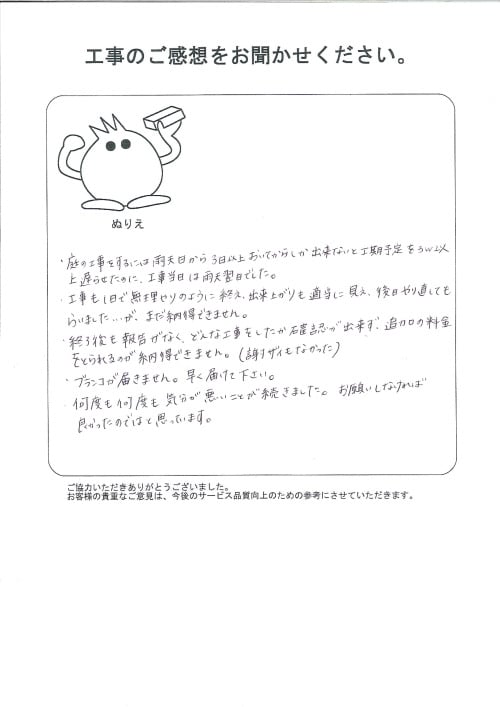 工事のご感想をお聞かせください。
ぬりえ
・庭の工事をするには雨天日から3日以上おいてからしか出来ないと工期予定を3W以
上遅らせたのに、工事当日は雨天翌日でした。
・工事も1日で無理やりのように終え、出来上がりも適当に見え、後日やり直しても
らいました…が、まだ納得できません。
・終了後も報告がなく、どんな工事をしたか確認が出来ず、追加の料金
をとられるのが納得できません。(謝ザイもなかった)
・ブランコが届きません。早く届けて下さい。
・何度も何度も気分が悪いことが続きました。お願いしなければ
良かったのではと思っています。
ご協力いただきありがとうございました。
お客様の貴重なご意見は、今後のサービス品質向上のための参考にさせていただきます。